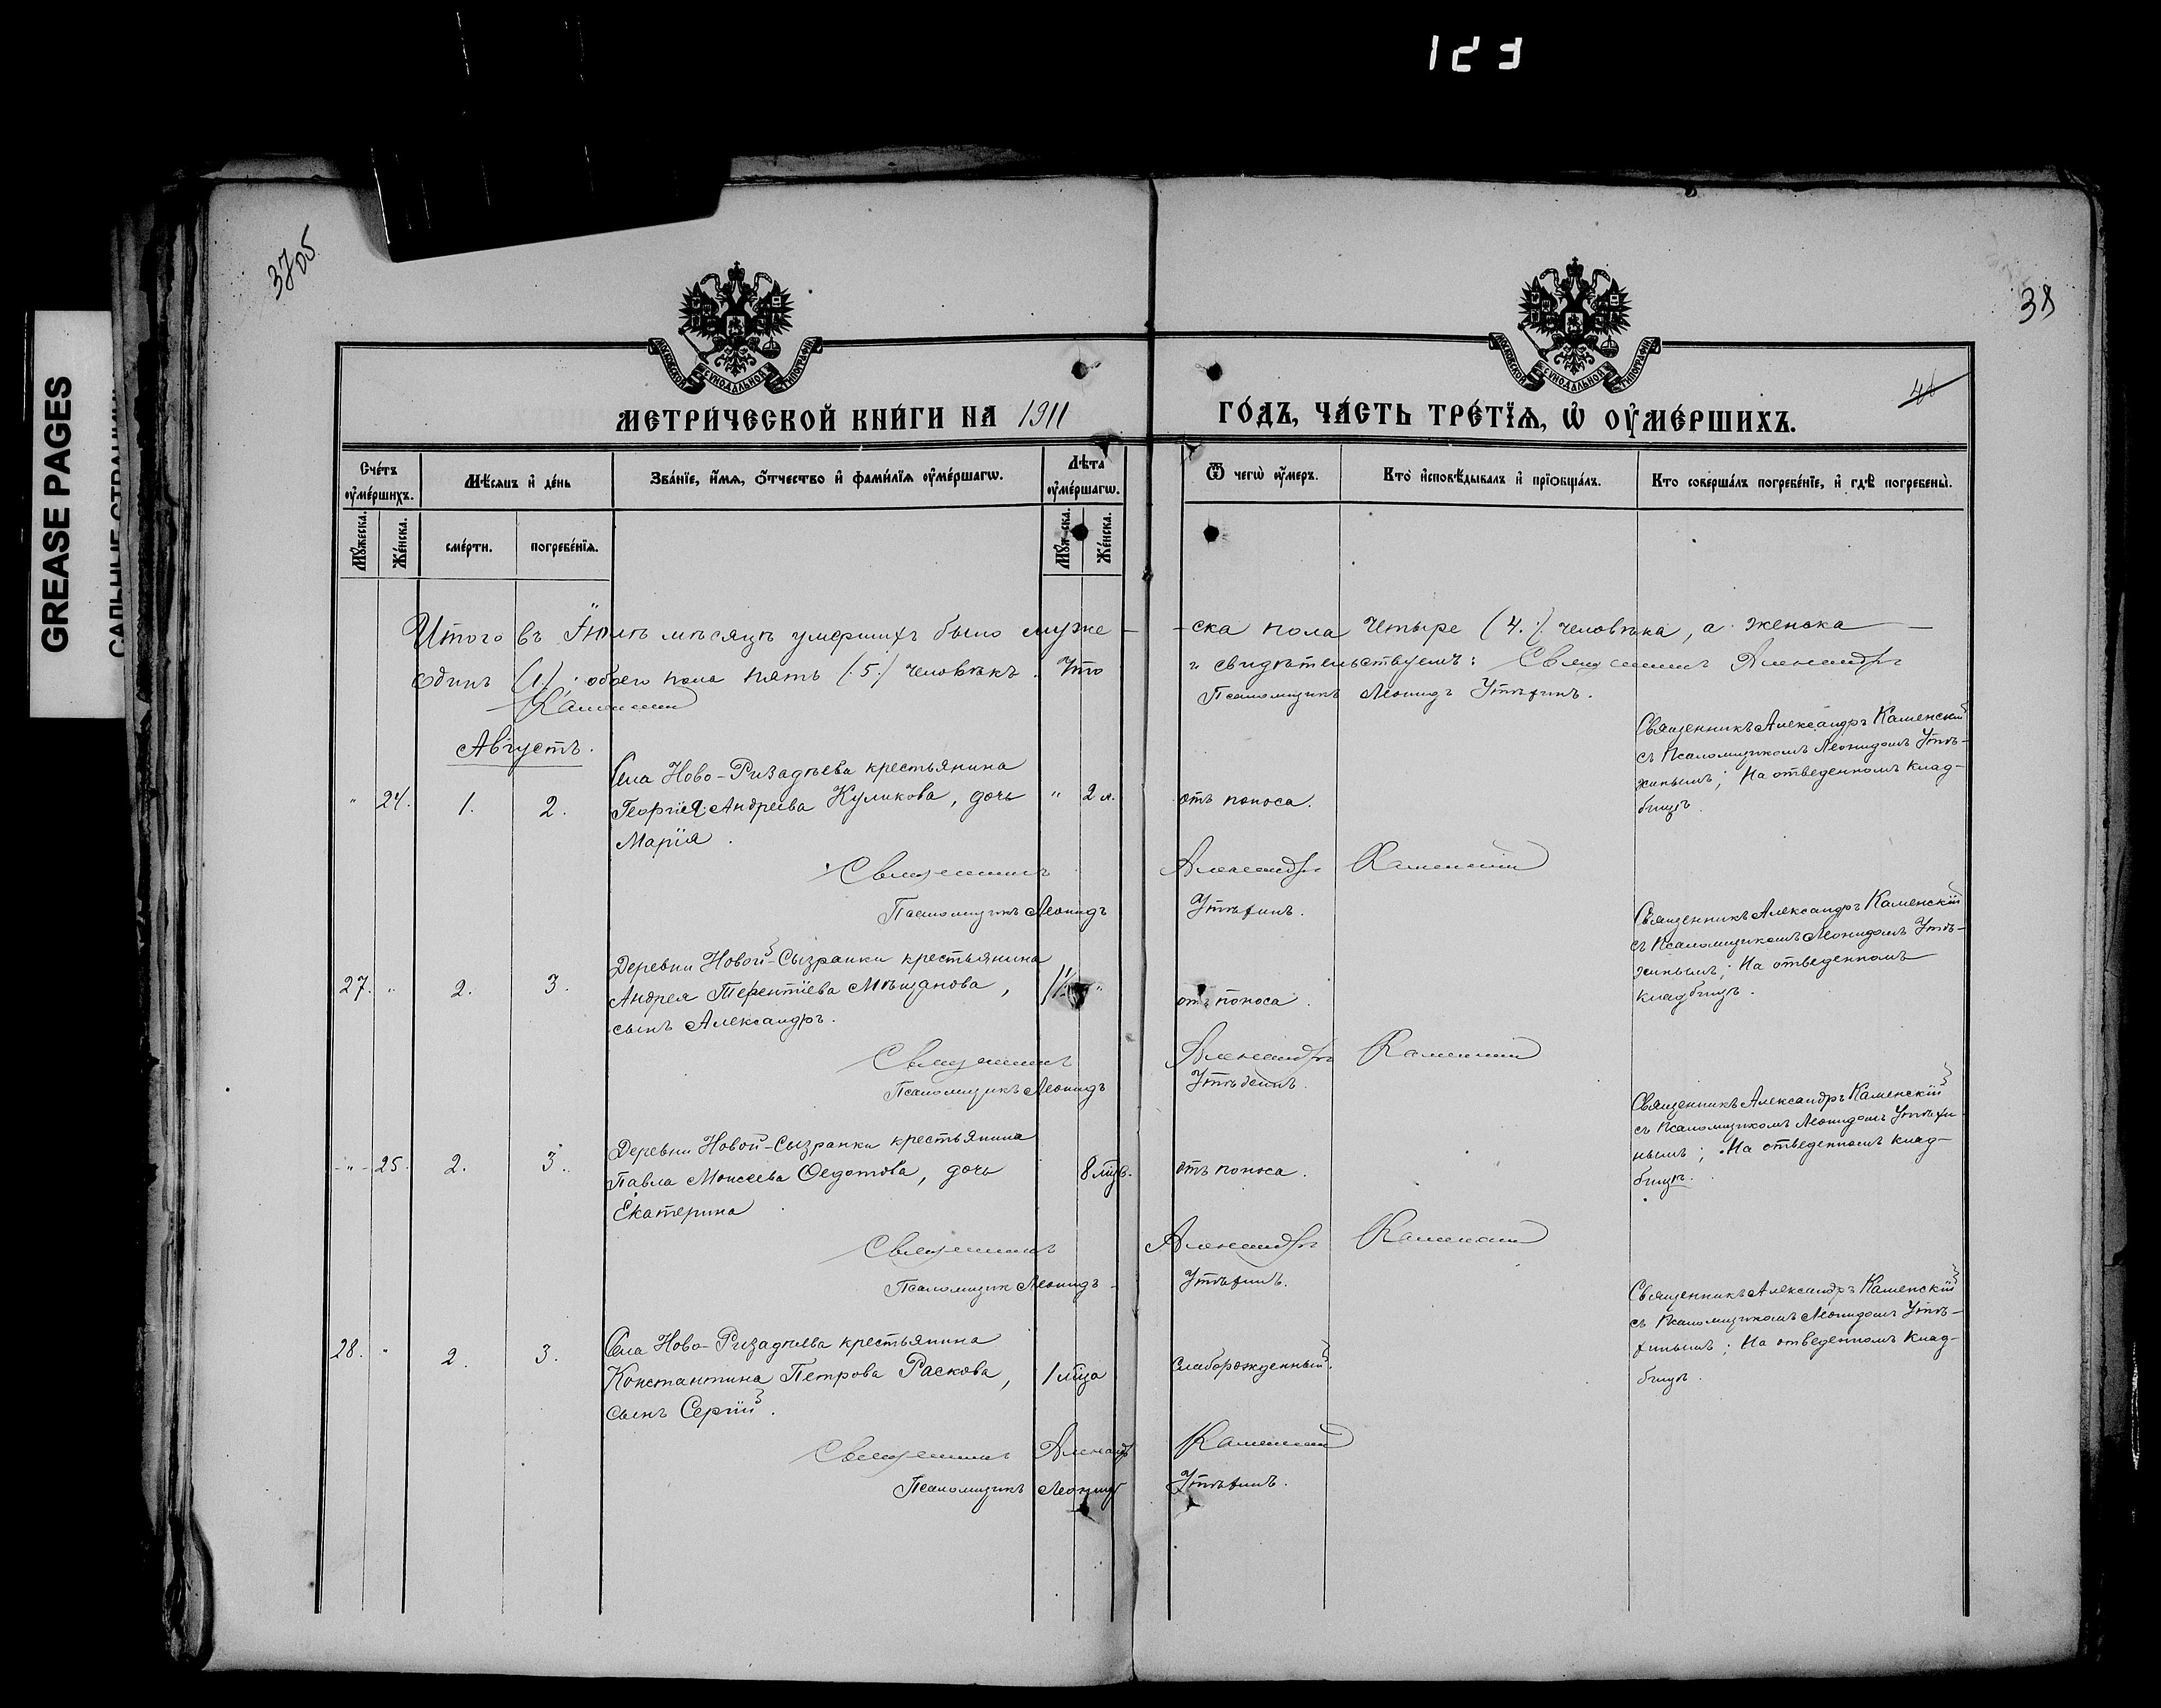 123
GREASE PAGES
37об
38
МОСКОВСКОЙ СѴНОДАЛЬНОЙ ТИПОГРАФІИ
МОСКОВСКОЙ СѴНОДАЛЬНОЙ ТИПОГРАФІИ
МЕТРИ́ЧЕСКОЙ КНИ́ГИ НА 1911 ГО́ДЪ, ЧА́СТЬ ТРЕ́ТЇѦ, Ѡ҆ ОУ҆МЕ́РШИХЪ.
Сче́тъ оу҆ме́ршихъ.
Мѣ́сѧцъ и҆ де́нь
Зва́нїе, и҆́мѧ, ѻ҆́тчество и҆ фамилїѧ оу҆ме́ршагѡ.
Лѣ́та оу҆ме́ршагѡ.
Ѿ чегѡ̀ оу҆́меръ.
Кто̀ и҆сповѣ́дывалъ и҆ прїѡбща́лъ.
Кто соверша́лъ погребе́нїе, и҆ гдѣ̀ погребены̀.
Му́жеска.
Же́нска.
сме́рти.
погребе́нїѧ.
Му́жеска.
Же́нска.
Итого въ Іюлѣ мѣсяцѣ умершихъ было муже-ска пола четыре (4.) человѣка, а женска
одинъ (1.), обоего пола пять (5.) человѣкъ. Что и свидѣтельствуемъ: Священникъ Александръ
Каменскій Псаломщикъ Леонидъ Утѣхинъ.
Августъ.
" 24. 1. 2.
Села Ново-Ризадѣева крестьянина
Георгія Андреева Куликова, дочь
Марія.
" 2 л.
отъ поноса.
Священникъ Александръ Каменскій
съ Псаломщикомъ Леонидомъ Утѣ-
хинымъ; На отведенномъ клад-
бищѣ.
Священникъ Александръ Каменскій
Псаломщикъ Леонидъ Утѣхинъ.
27. " 2. 3.
Деревни Новой-Сызранки крестьянина
Андрея Терентіева Мѣщанова,
сынъ Александръ.
отъ поноса.
Священникъ Александръ Каменскій
съ Псаломщикомъ Леонидомъ Утѣ-
хинымъ; На отведенномъ
кладбищѣ.
Священникъ Александръ Каменскій
Псаломщикъ Леонидъ Утѣхинъ.
-"- 25. 2. 3.
Деревни Новой-Сызранки крестьянина
Павла Моисеева Ѳедотова, дочь
Екатерина
8 мцв.
отъ поноса.
Священникъ Александръ Каменскій
съ Псаломщикомъ Леонидомъ Утѣхи-
нымъ; На отведенномъ клад-
бищѣ.
Священникъ Александръ Каменскій
Псаломщик Леонидъ Утѣхинъ.
28. " 2. 3.
Села Ново-Ризадѣева крестьянина
Константина Петрова Раскова,
сынъ Сергій.
1 мца
слаборожденный.
Священникъ Александръ Каменскій
съ Псаломщикомъ Леонидомъ Утѣ-
хинымъ; На отведенномъ клад-
бищѣ.
Священникъ Александръ Каменскій
Псаломщикъ Леонидъ Утѣхинъ.